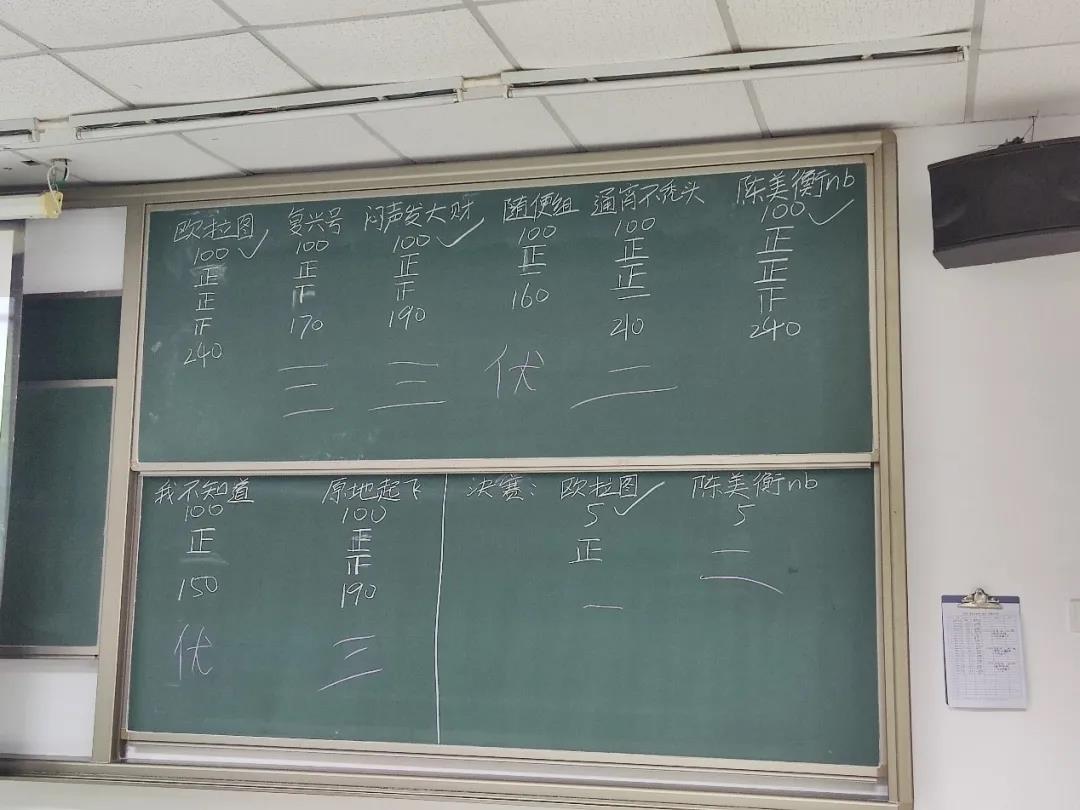 欧拉图
100
正
正
正
240
复兴号
100
正
170
三
闷声发大财
100
正
190
三
随便组
100
正
160
伏
通宵不秃头
100
正
正
一
210
二
陈美衡nb
100
正
正
240
我不知道
100
正
150
伏
原地起飞
100
正
190
三
决赛: 欧拉图
5
正
一
陈美衡nb
5
二